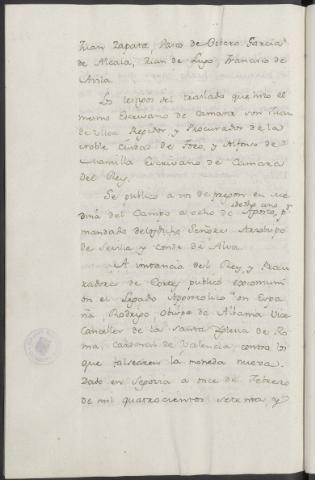 Juan Zapata, Pero de Otero Garcia
de Alcala, Juan de Lugo, Francisco de
Avila.
Los testigos del traslado que hizo el
mesmo Escrivano de Camara son Juan
de Ulloa Regidor, y Procurador de la
Noble Ciudad de Toro, y Alfonso de
Escrivano de Camara
del Rey.
Se publico a voz de pregon en Me
dina del Campo a ocho de Agosto, de dho año, y p.
mandado de los dichos Señores Arzobispo
de Sevilla y Conde de Alva.
A instancia del Rey, y Procu
radores de Cortes publicó excomuni
on el Legado Appostolico en Espa
ña Rodrigo Obispo de Albania Vice
Canceller de la Santa Iglesia de Ro
ma, Cardenal de Valencia contra los
que falseasen la moneda nueva.
Dado en Segovia a once de Febrero
de mil quatrocientos setenta y